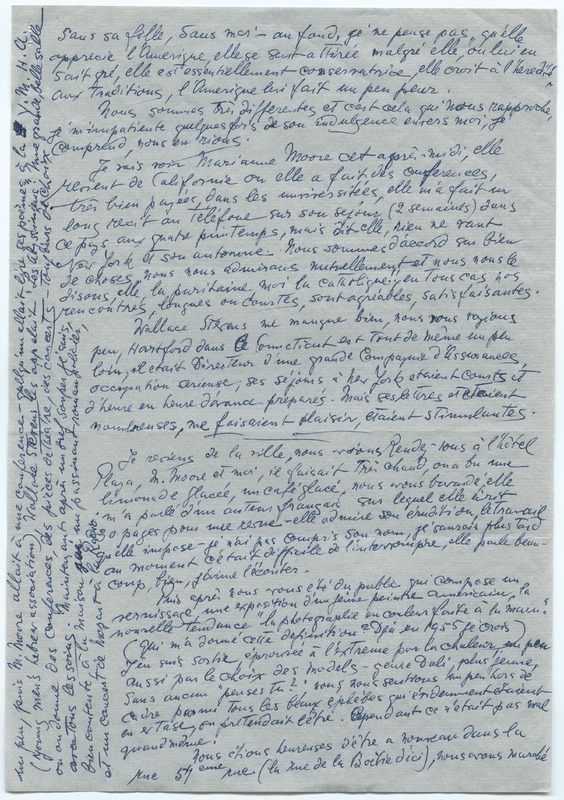 Sans sa fille, sans moi - au fond, je ne pense pas qu'elle
apprecie l'Amerique, elle se sent attirée malgré elle, ou lui en
sait gré, elle est essentiellement conservatrice, elle croit à l'heredité
aux traditions, l'Amerique lui fait un peu peur.
Nous sommes très differentes et c'est cela qui nous rapproche,
je m'impatiente quelques fois de son indulgence envers moi, je
comprend, nous en rions.
Je vais voir Marianne Moore cet après-midi, elle
revient de Californie ou elle a fait des conferences,
très bien payées, dans les universitées, elle m'a fait un
long recit au téléfone sur son sejour (2 semaines) dans
ce pays aux quatre printemps, mais dit elle, rien ne vaut
New York et son automne. Nous sommes d'accord sur bien
de choses, nous nous admirons mutuellement et nous nous le
disons, elle la puritaine moi la catholique, en tous cas nos
rencontres, longues ou courtes, sont agréables, satisfaisantes.
Wallace Stevens me manque bien, nous nous voyions
peu, Hartford dans le Connecticut est tout de même un peu
loin, il était Directeur d'une grande Compagnie d'Assurances,
occupation serieuse, ses séjours à New York etaient courts et
d'heure en heure d'avance preparés. Mais ses lettres etaient
nombreuses, me faisaient plaisir, étaient stimulantes.
Je reviens de la ville, nous avions Rendez-vous à l'hôtel
Plaza, M. Moore et moi, il faisait très chaud, on a bu une
limonade glacée, un café glacé, nous avons bavardé, elle
m'a parlé d'un auteur français sur lequel elle écrit
10 pages pour une revue - elle admire son érudition, le travail
qu'elle impose - je n'ai pas compris son nom, je saurais plus tard
au moment c'était difficile de l'interrompre, elle parle beau-
coup, bien, j'aime l'écouter.
Puis après nous avons été du public qui compose un
vernissage, une exposition d'un jeune peintre américain, la
nouvelle tendance "la photographie en couleur faite à la main".
(Qui m'a donné cette definition? Déjà en 1955 je crois)
J'en suis sortie, éprouvée à l'extreme par la chaleur, un peu
aussi par le choix des models - genre Dali, plus jeune,
Sans aucun "penses tu?" nous nous sentions un peu hors de
cadre parmi tous les beaux ephèbes qui évidemment etaient
en extase, ou prétendait l'être. Cependant ce n'était pas mal
quand même.
Nous étions heureuses d'être à nouveau dans la
rue 57 eme rue (la rue de la Boëtie d'ici), nous avons marché
un peu, puis M. Moore allait à une conference - quelqu'un allait lire ses poèmes, à la Y.M.H.A.
(young men's hebrew association) Wallace Stevens les appelait
ou on donne des conferences, des pièces de théatre, des concerts - toujours de choix